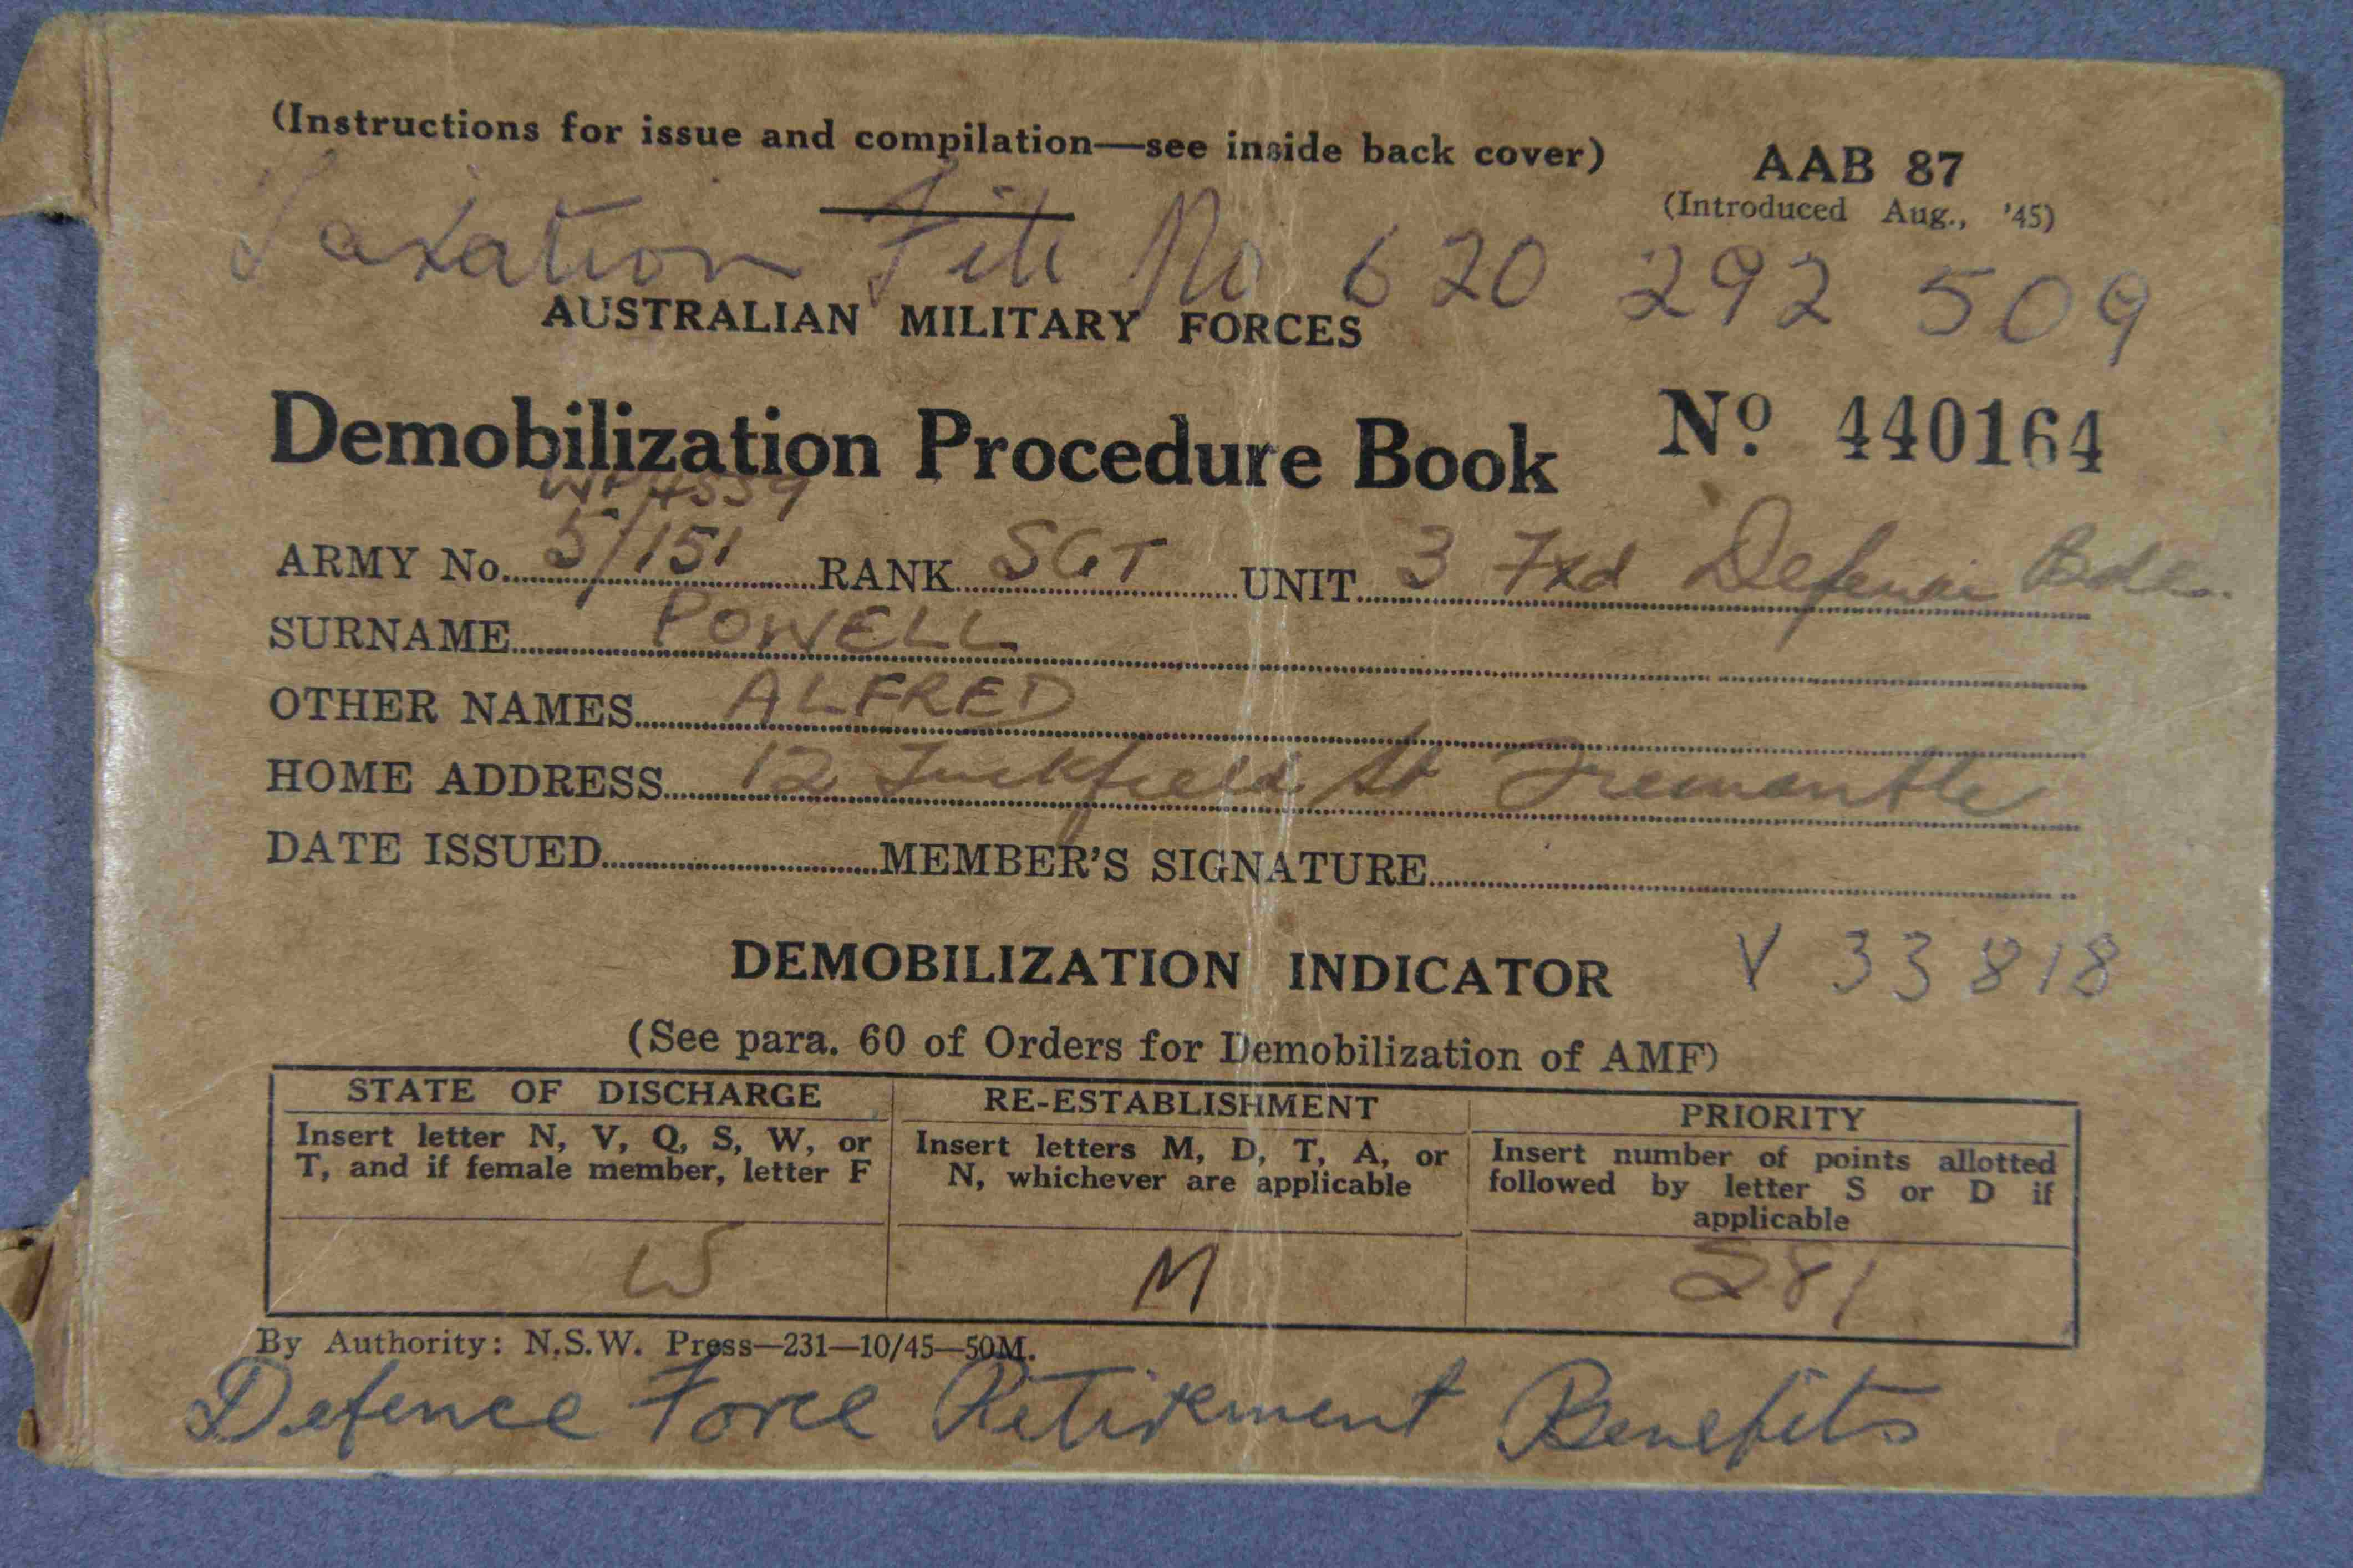 (Instructions for issue and compilation—see inside back cover)
AAB 87
(Introduced Aug., '45)
Taxation File No 620 292 509
AUSTRALIAN MILITARY FORCES
Demobilization Procedure Book No. 440164
ARMY No. 5/151 RANK SGT UNIT 3 Fxd Defence Bde.
SURNAME POWELL
OTHER NAMES ALFRED
HOME ADDRESS 12 Tuckfield St Fremantle
DATE ISSUED MEMBER'S SIGNATURE
DEMOBILIZATION INDICATOR V 33818
(See para. 60 of Orders for Demobilization of AMF)
STATE OF DISCHARGE
Insert letter N, V, Q, S, W, or
T, and if female member, letter F
W
RE-ESTABLISHMENT
Insert letters M, D, T, A, or
N, whichever are applicable
M
PRIORITY
Insert number of points allotted
followed by letter S or D if
applicable
281
By Authority: N.S.W. Press—231—10/45—50M.
Defence Force Retirement Benefits